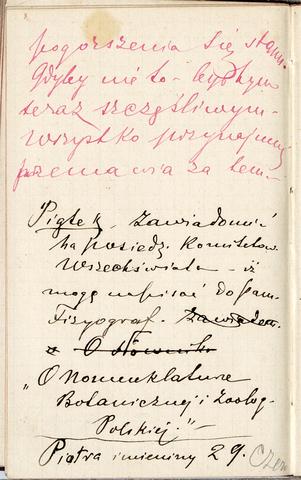 pogorszenia się stanu.
Gdyby nie to - byłbym
teraz szczęśliwym -
wszystko przynajmniej
przemawia za tem -
Piątek, zawiadomić
na posiedz. Komitetow.
Wszechświata - iż
mogę napisać do Pam.
Fizyograf.
O Słowniku
„O Nomenklaturze
Botanicznej i Zoolog.
Polskiej." -
Piotra imieniny 29.